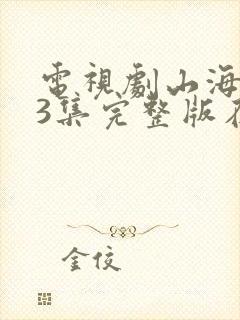 電視劇山海
3集完整版
金佼